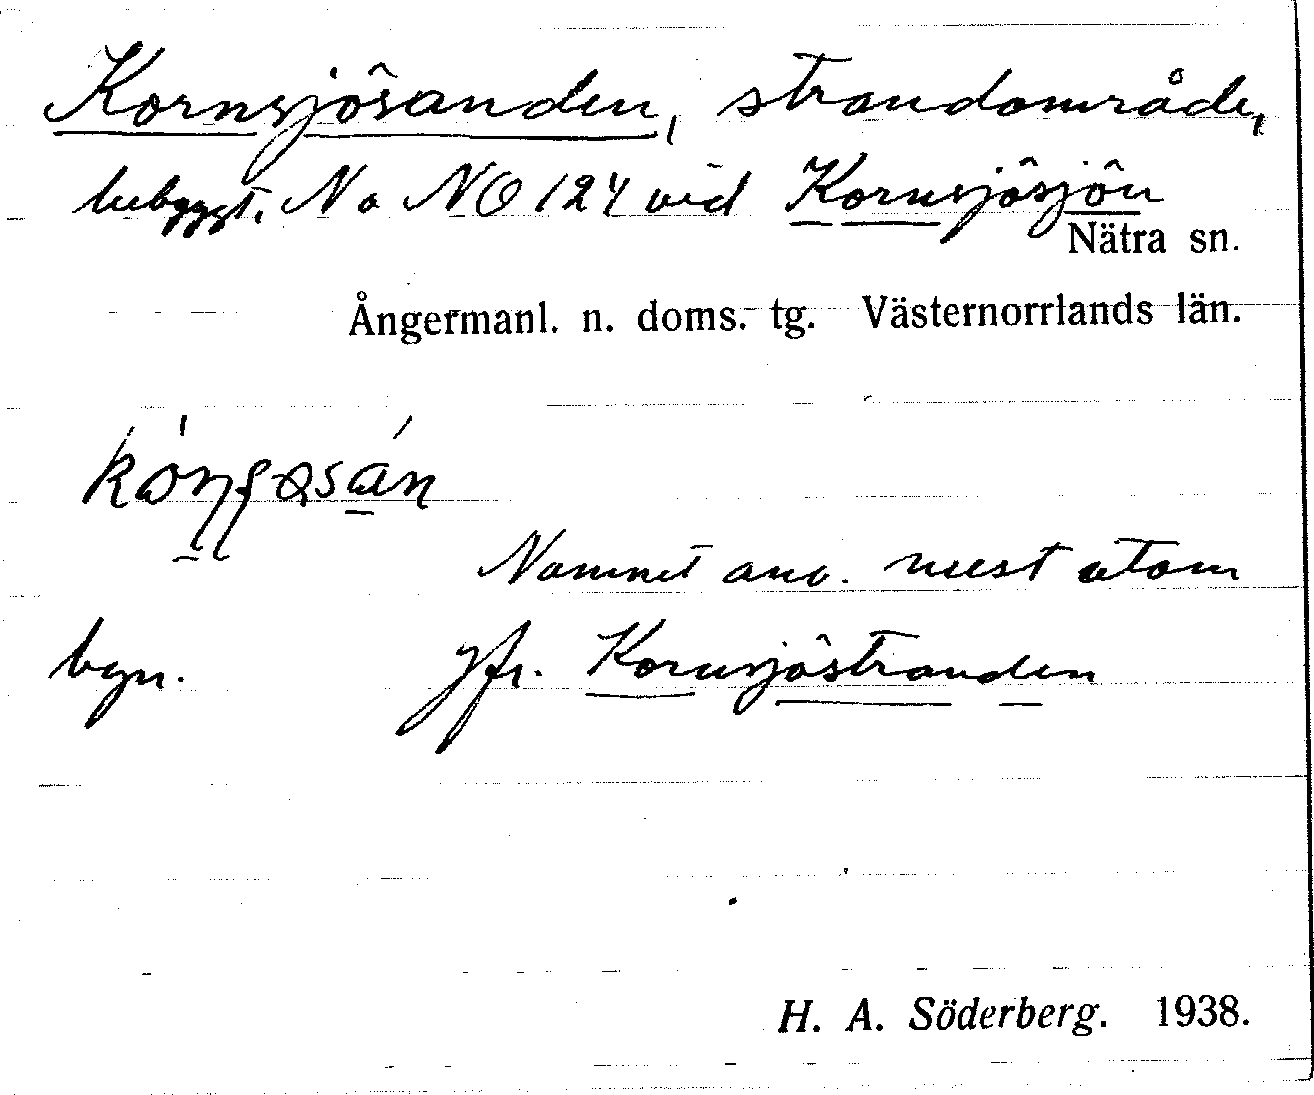 Kornsjösanden, strandområde,
bebyggt. Na NO 124 vid Kornsjösjön
Nätra sn.
Ångermanl. n. doms. tg. Västernorrlands län.
Namnet anv. mest utom
byn. Jfr. Kornsjöstranden
H. A. Söderberg. 1938.